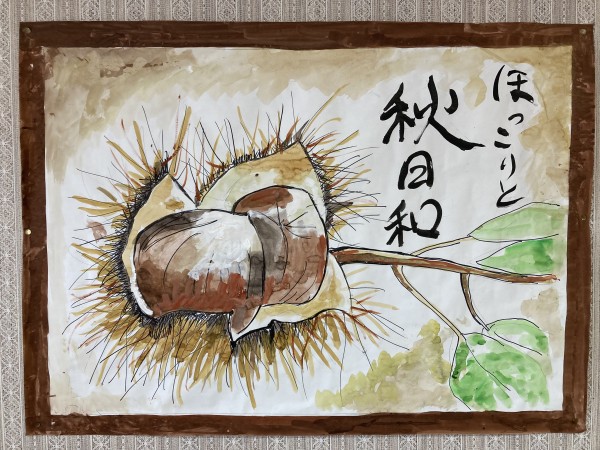 ほっこりと
秋日和